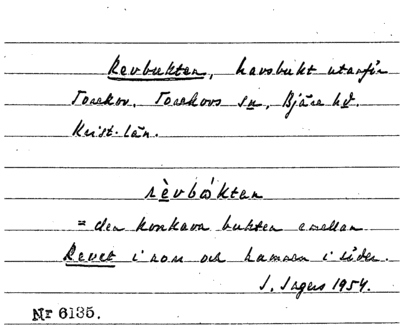 Revbukten, havsbukt utanför
Torekov, Torekovs sn, Bjäre hd.
Krist. län.
rèvbòkten
= den konkava bukten emellan
Revet i norr och hamnen i söder.
I. Ingers 1954.
Nr 6135.